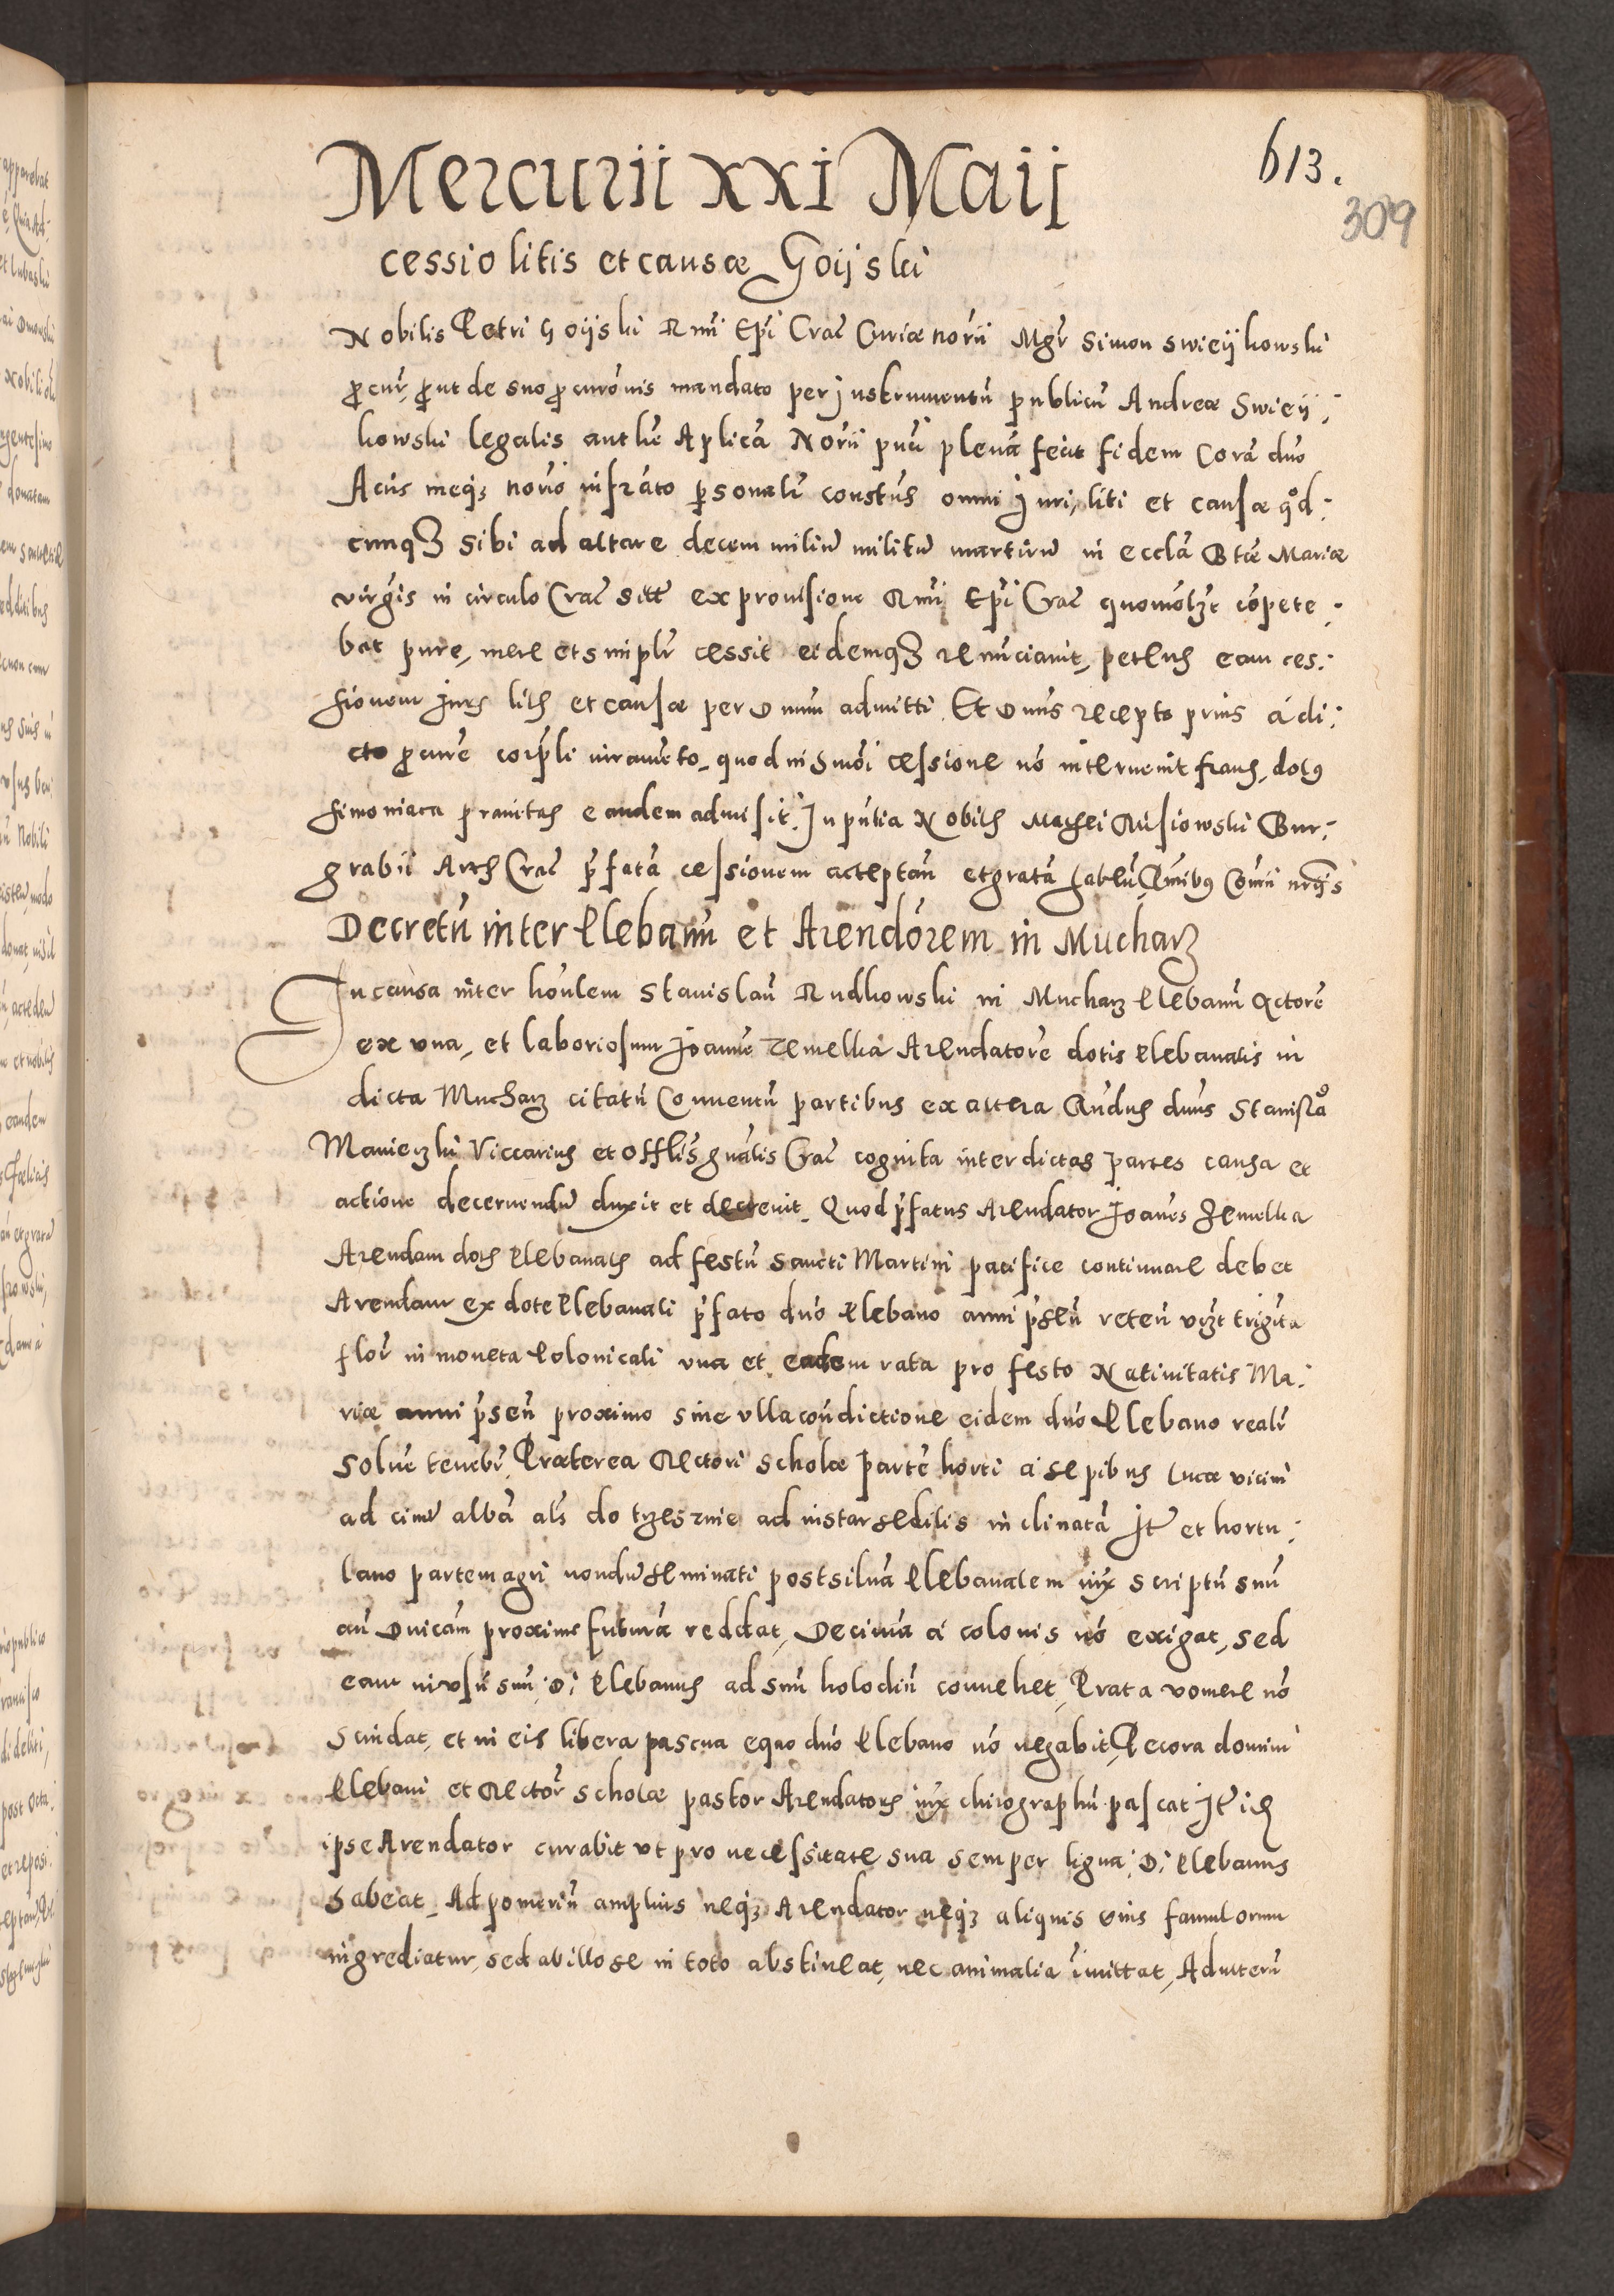 613.
309
Mercurii XXI Maij
cessio litis et causæ Goijski
Nobilis Petri Goijski Rmi Epi Crac Curiæ norii Mgr Simon Swieijkowski
procur, prout de suo procuronis mandato per instrumentu publicu Andreæ Swieij:
kowski legalis authe Aplica Norii pnti plena fecit fidem Cora duo
Acus meqz norio infrato personalr constus omni juri, liti et causæ quod:
cunqz sibi ad altare decem miliu militu martiru in eccla Btæ Mariæ
virgis in circulo Crac sitt ex prouisione Rmi Epi Crac quomolzt copete:
bat pure, mere et simplr cessit eidemqz renunciauit, petens eam ces:
sionem juris litis et causæ per Dnum admitti. Et Dnus recepto prius a di:
cto procure corpli iuramento, quod in hmoi cessione no interuenit fraus, dolus
simoniaca prauitas eandem admisit. In pntia Nobilis Mathei Misiowski Bur:
grabii Arcis Crac pfata cessionem acceptan et grata haben, Quibus Comii nrqs
Decretu inter Plebanu et Arendorem in Mucharz
In causa inter honlem Stanislau Rudkowski in Mucharz Plebanu Actore
ex vna, et laboriosum Joanne Zemelka Arendatore dotis Plebanalis in
dicta Mucharz citatu Conuentu partibus ex altera Rndus dnus Stanisla
Manieczki Viccarius et Offlis gnalis Crac cognita inter dictas partes causa et
actione decernendu duxit et decreuit. Quod pfatus Arendator Joanes Zemelka
Arendam dotis Plebanalis ad festu Sancti Martini pacifice continuare debet
Arendam ex dote Plebanali pfato dno Plebano anni psen reten vizt triginta
flor in moneta Polonicali vna et eadem rata pro festo Natiuitatis Ma:
riæ anni psen proximo sine vlla condictione eidem dno Plebano realr
solue tenebr, Præterea Rectori scholæ parte horti a sepibus Lucæ vicini
ad cimu alba als do trzesznie ad instar sedilis inclinata Jt et hortu:
lano partem agri nondu seminati post silua Plebanalem iux scriptu suu
an Dnicam proxime futura reddat, Decima a colonis no exigat, sed
eam in vsu suu D: Plebanus ad suu holodiu conuehet, Prata vomere no
scindat, et in eis libera pascua equo dno Plebano no negabit, Pecora domini
Plebani et Rector scholæ pastor Arendatoris iux chirographu pascat Jt is
ipse Arendator curabit vt pro necessitate sua semper ligna D: Plebanus
habeat, Ad pomeriu amplius neqz Arendator neqz aliquis eius famulorum
ingrediatur, sed ab illo se in toto abstineat, nec animalia imittat, Adulteru